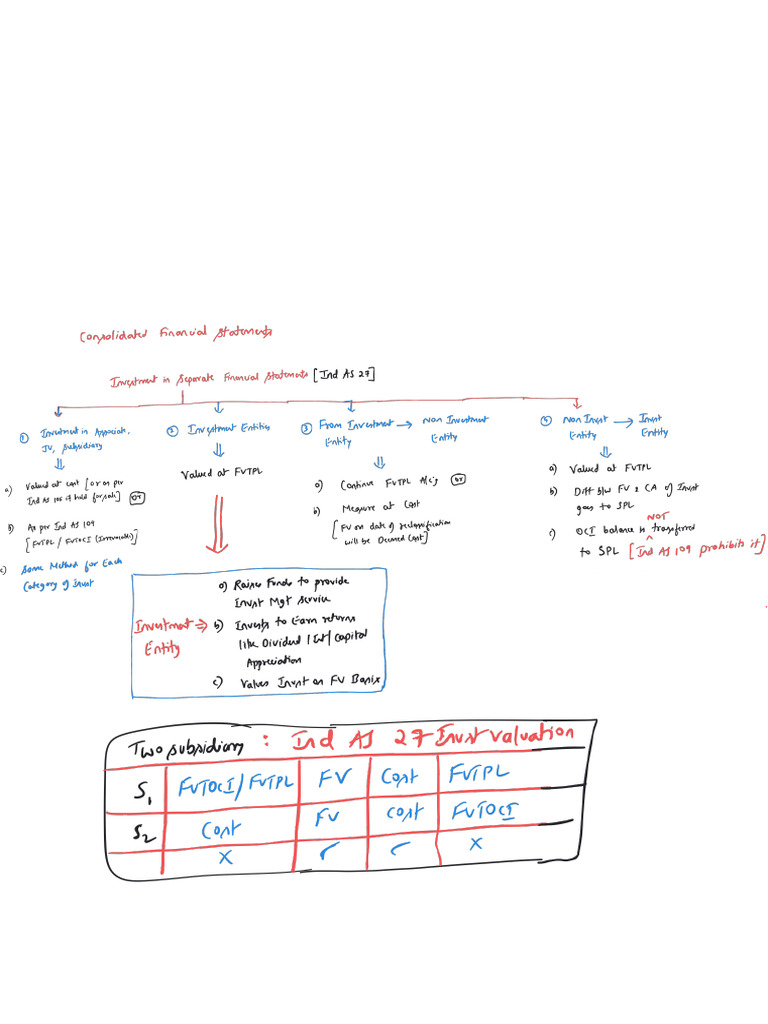 Consolidated Financial Statements
Investment in Separate Financial Statements [Ind AS 27]
① Investment in Associate,
JV, Subsidiary
a) Valued at cost [or as per
Ind AS 105 if held for sale] or
b) As per Ind AS 109
[FVTPL / FVTOCI (Irrevocable)]
c) Same Method for Each
Category of Invst
② Investment Entities
Valued at FVTPL
③ From Investment → Non Investment
Entity Entity
a) Continue FVTPL A/c'g or
b) Measure at Cost
[FV on date of reclassification
will be Deemed Cost]
④ Non Invst → Invst
Entity Entity
a) Valued at FVTPL
b) Diff b/w FV & CA of Invst
goes to SPL
NOT
c) OCI balance is ^ transferred
to SPL [Ind AS 109 prohibits it]
Investment ⇒
Entity
a) Raises Funds to provide
Invst Mgt Service
b) Invests to Earn returns
like Dividend / Int / Capital
Appreciation
c) Values Invst on FV Basis
Two subsidiary : Ind AS 27 Invst valuation
S1 FVTOCI/FVTPL FV Cost FVTPL
S2 Cost FV Cost FVTOCI
X ✓ ✓ X